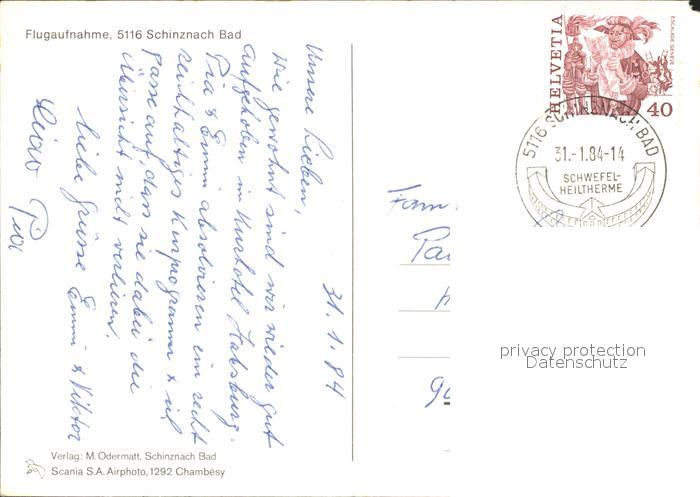 Flugaufnahme, 5116 Schinznach Bad
31.1.84
Unsere Lieben,
Wie gewohnt sind wir wieder gut
aufgehoben im Kurhotel Habsburg.
Pia & Emmi absolvieren ein recht
reichhaltiges Kurprogramm & ich
passe auf, dass sie dabei die
Übersicht nicht verlieren.
Liebe Grüsse Emmi & Viktor
Pia
Verlag: M. Odermatt, Schinznach Bad
Scania S.A. Airphoto, 1292 Chambésy
HELVETIA
ESCALADE GENÈVE
40
5116 SCHINZNACH BAD
31.-1.84-14
SCHWEFEL-
HEILTHERME
Fam.
privacy protection
Datenschutz